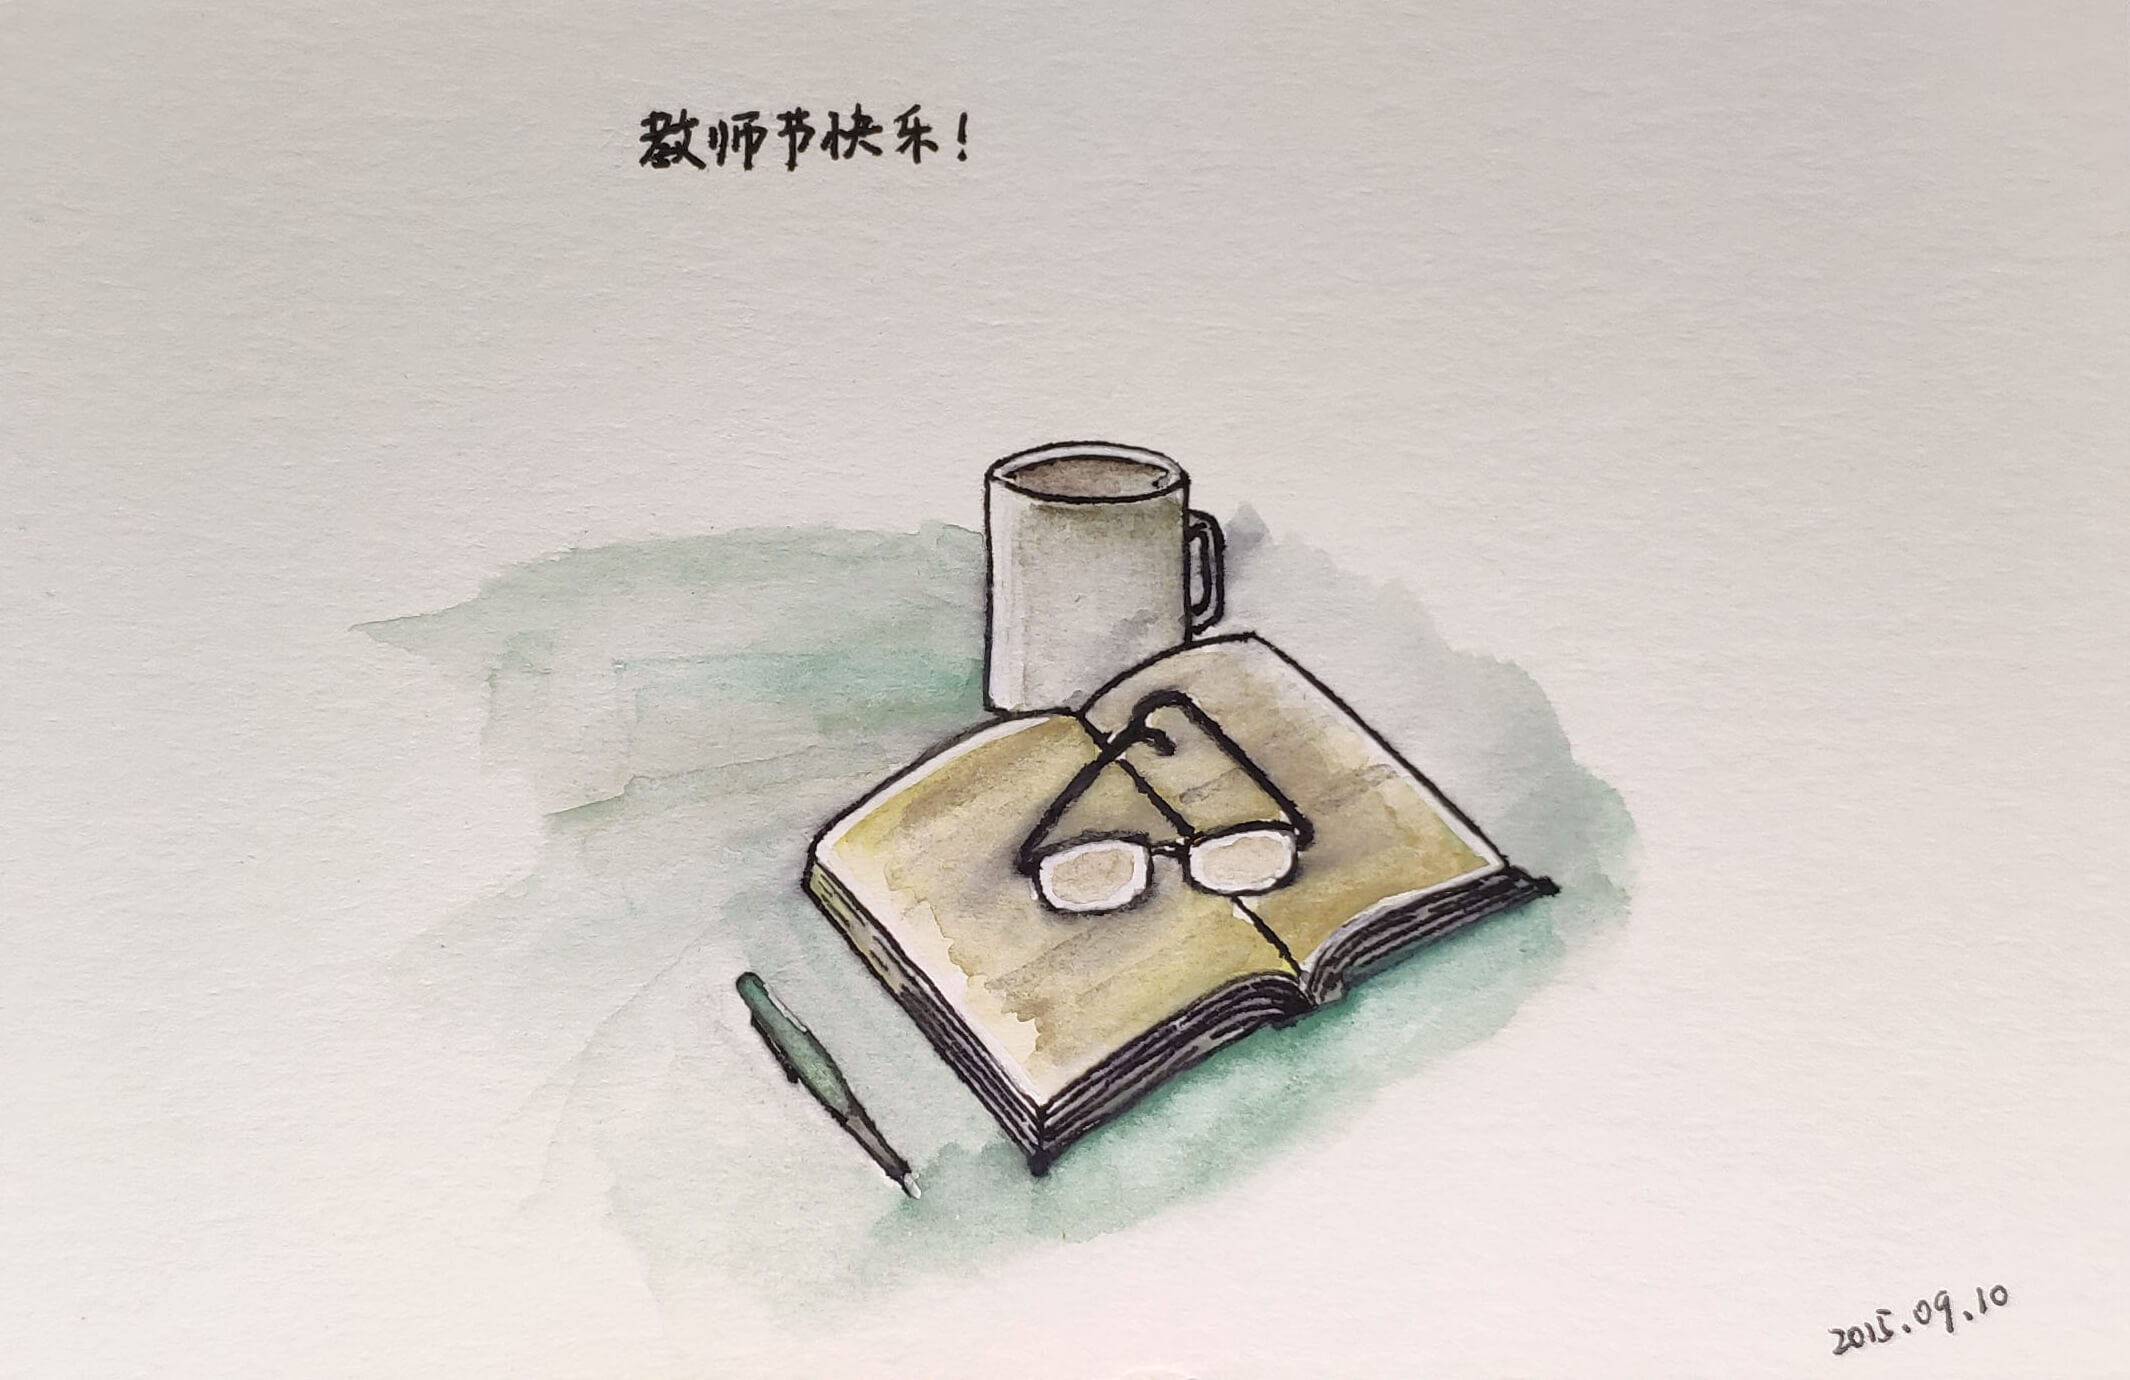 教师节快乐！
2015.09.10